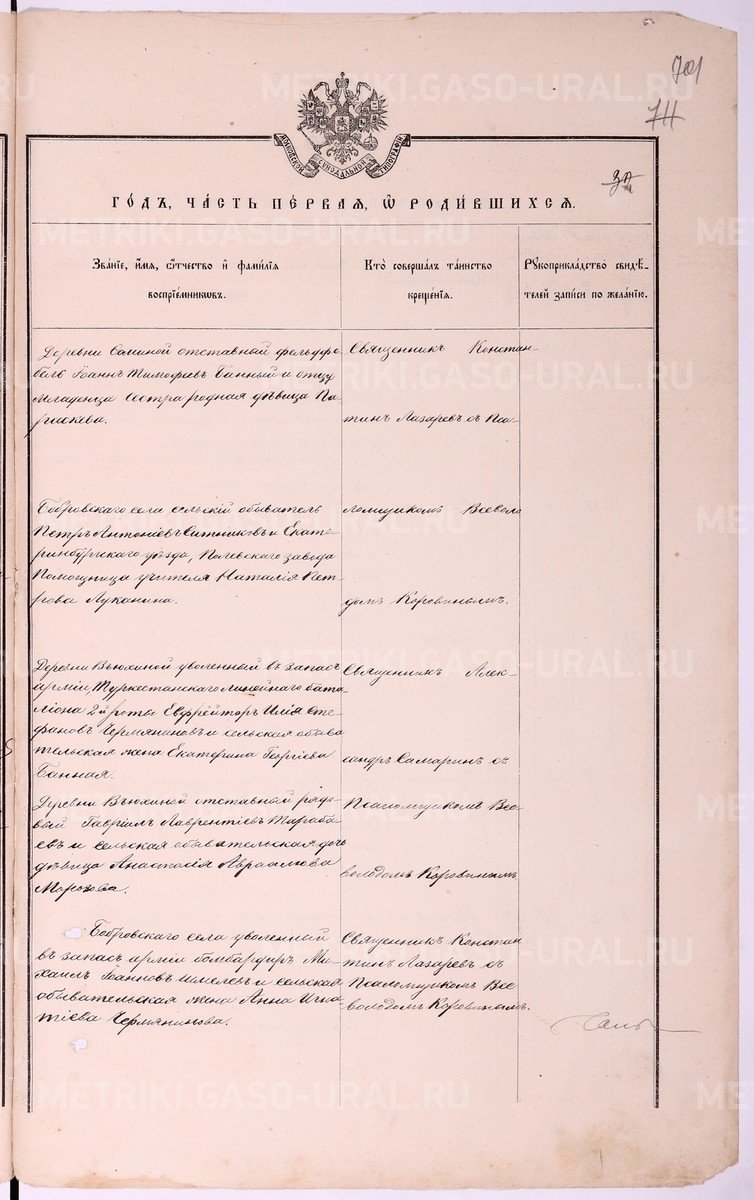 701
74
МОСКОВСКОЙ СѴНОДАЛЬНОЙ ТИПОГРАФІИ
ГО́ДЪ, ЧА́СТЬ ПЕ́РВАЯ, Ѡ҆ РОДИ́ВШИХСЯ.
Зва́ніе, и҆́мя, ѻ҆́тчество и҆ фами́лія
воспріе́мниковъ.
Кто̀ соверша́лъ та́инство
креще́нія.
Рꙋкоприкла́дство свидѣ́-
телей за́писи по жела́нію.
Деревни Саниной отставный фельдфе-
бель Іоаннъ Тимофеевъ Банный и отцу
младенца сестра родная дѣвица Па-
раскева.
Священникъ Констан-
тинъ Лазаревъ съ Пса-
Бобровскаго села сельскій обыватель
Петръ Антоніевъ Ситниковъ и Екате-
ринбургскаго уѣзда, Полевскаго завода
Помощница учителя Наталія Пет-
рова Луканина.
ломщикомъ Всеволо
домъ Коровинымъ.
Деревни Вьюхиной уволенный въ запасъ
арміи Туркестанскаго линейнаго бата-
ліона 2й роты Ефрейторъ Илія Сте-
фановъ Чермяниновъ и сельская обыва
тельская жена Екатерина Георгіева
Банная.
Священникъ Алек-
сандръ Самаринъ съ
Деревни Вьюхиной отставный рядо-
вый Гавріилъ Лаврентіевъ Тараба-
евъ и сельская обывательская дочь
дѣвица Анастасія Авраамова
Морозова.
Псаломщикомъ Все
володомъ Коровинымъ
Бобровскаго села уволенный
въ запасъ арміи бомбардиръ Ми-
хаилъ Іоанновъ Шмелевъ и сельская
обывательская жена Анна Игна
тіева Чермянинова.
Священникъ Констан
тинъ Лазаревъ съ
Псаломщикомъ Все
володомъ Коровинымъ.
METRIKI.GASO-URAL.RU